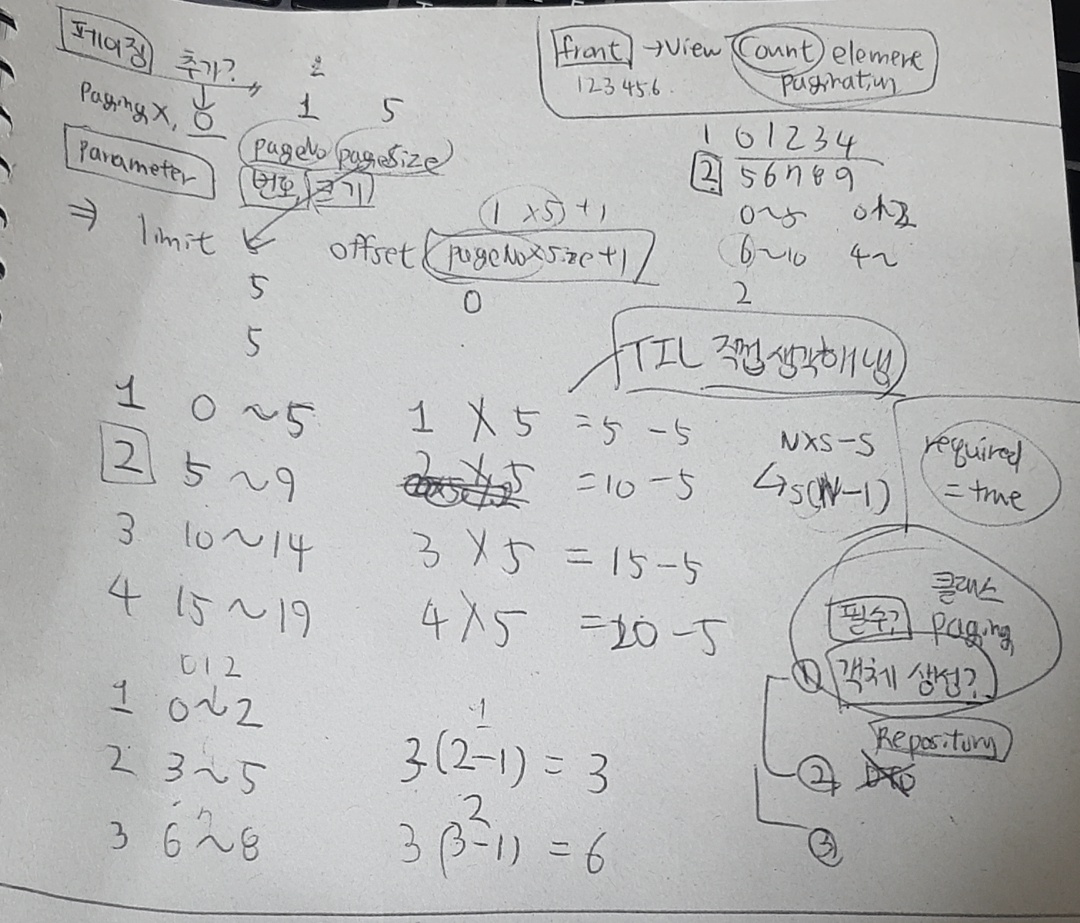 페이징 추가? 2
Paging X, O 1 5
Parameter pageNo pageSize
번호 크기
(1 X5)+1
⇒ limit offset pageNo×Size+1
5 0
5
front →View Count element
123456. pagination
1 01234
2 56789
0~5
6~10 4~
2
TIL 직접생각해냄
1 0 ~5 1 X 5 =5 -5
2 5 ~9 2 X 5 =10 -5
3 10~14 3 X 5 = 15-5
4 15 ~19 4 X 5 =20 -5
NX5-5
↳5(N-1)
required
=true
012
1 0~2
2 3~5 3(2-1) = 3
1
3 6~8 3(3-1) = 6
2
클래스
필수? paging
① 객체 생성?
Repository
② DTO
③